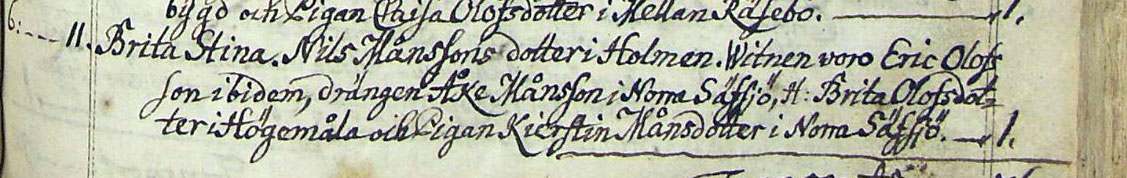 bygd och Pigan Caisa Olofsdotter i Mellan Räsebo. — 1.
6: — 11. Brita Stina. Nils Månssons dotter i Holmen. Witnen voro Eric Olofs
son ibidem, drängen Åke Månsson i Norra Säfsjö, H: Brita Olofsdot=
ter i Högemåla och Pigan Kierstin Månsdotter i Norra Säfsjö. — 1.